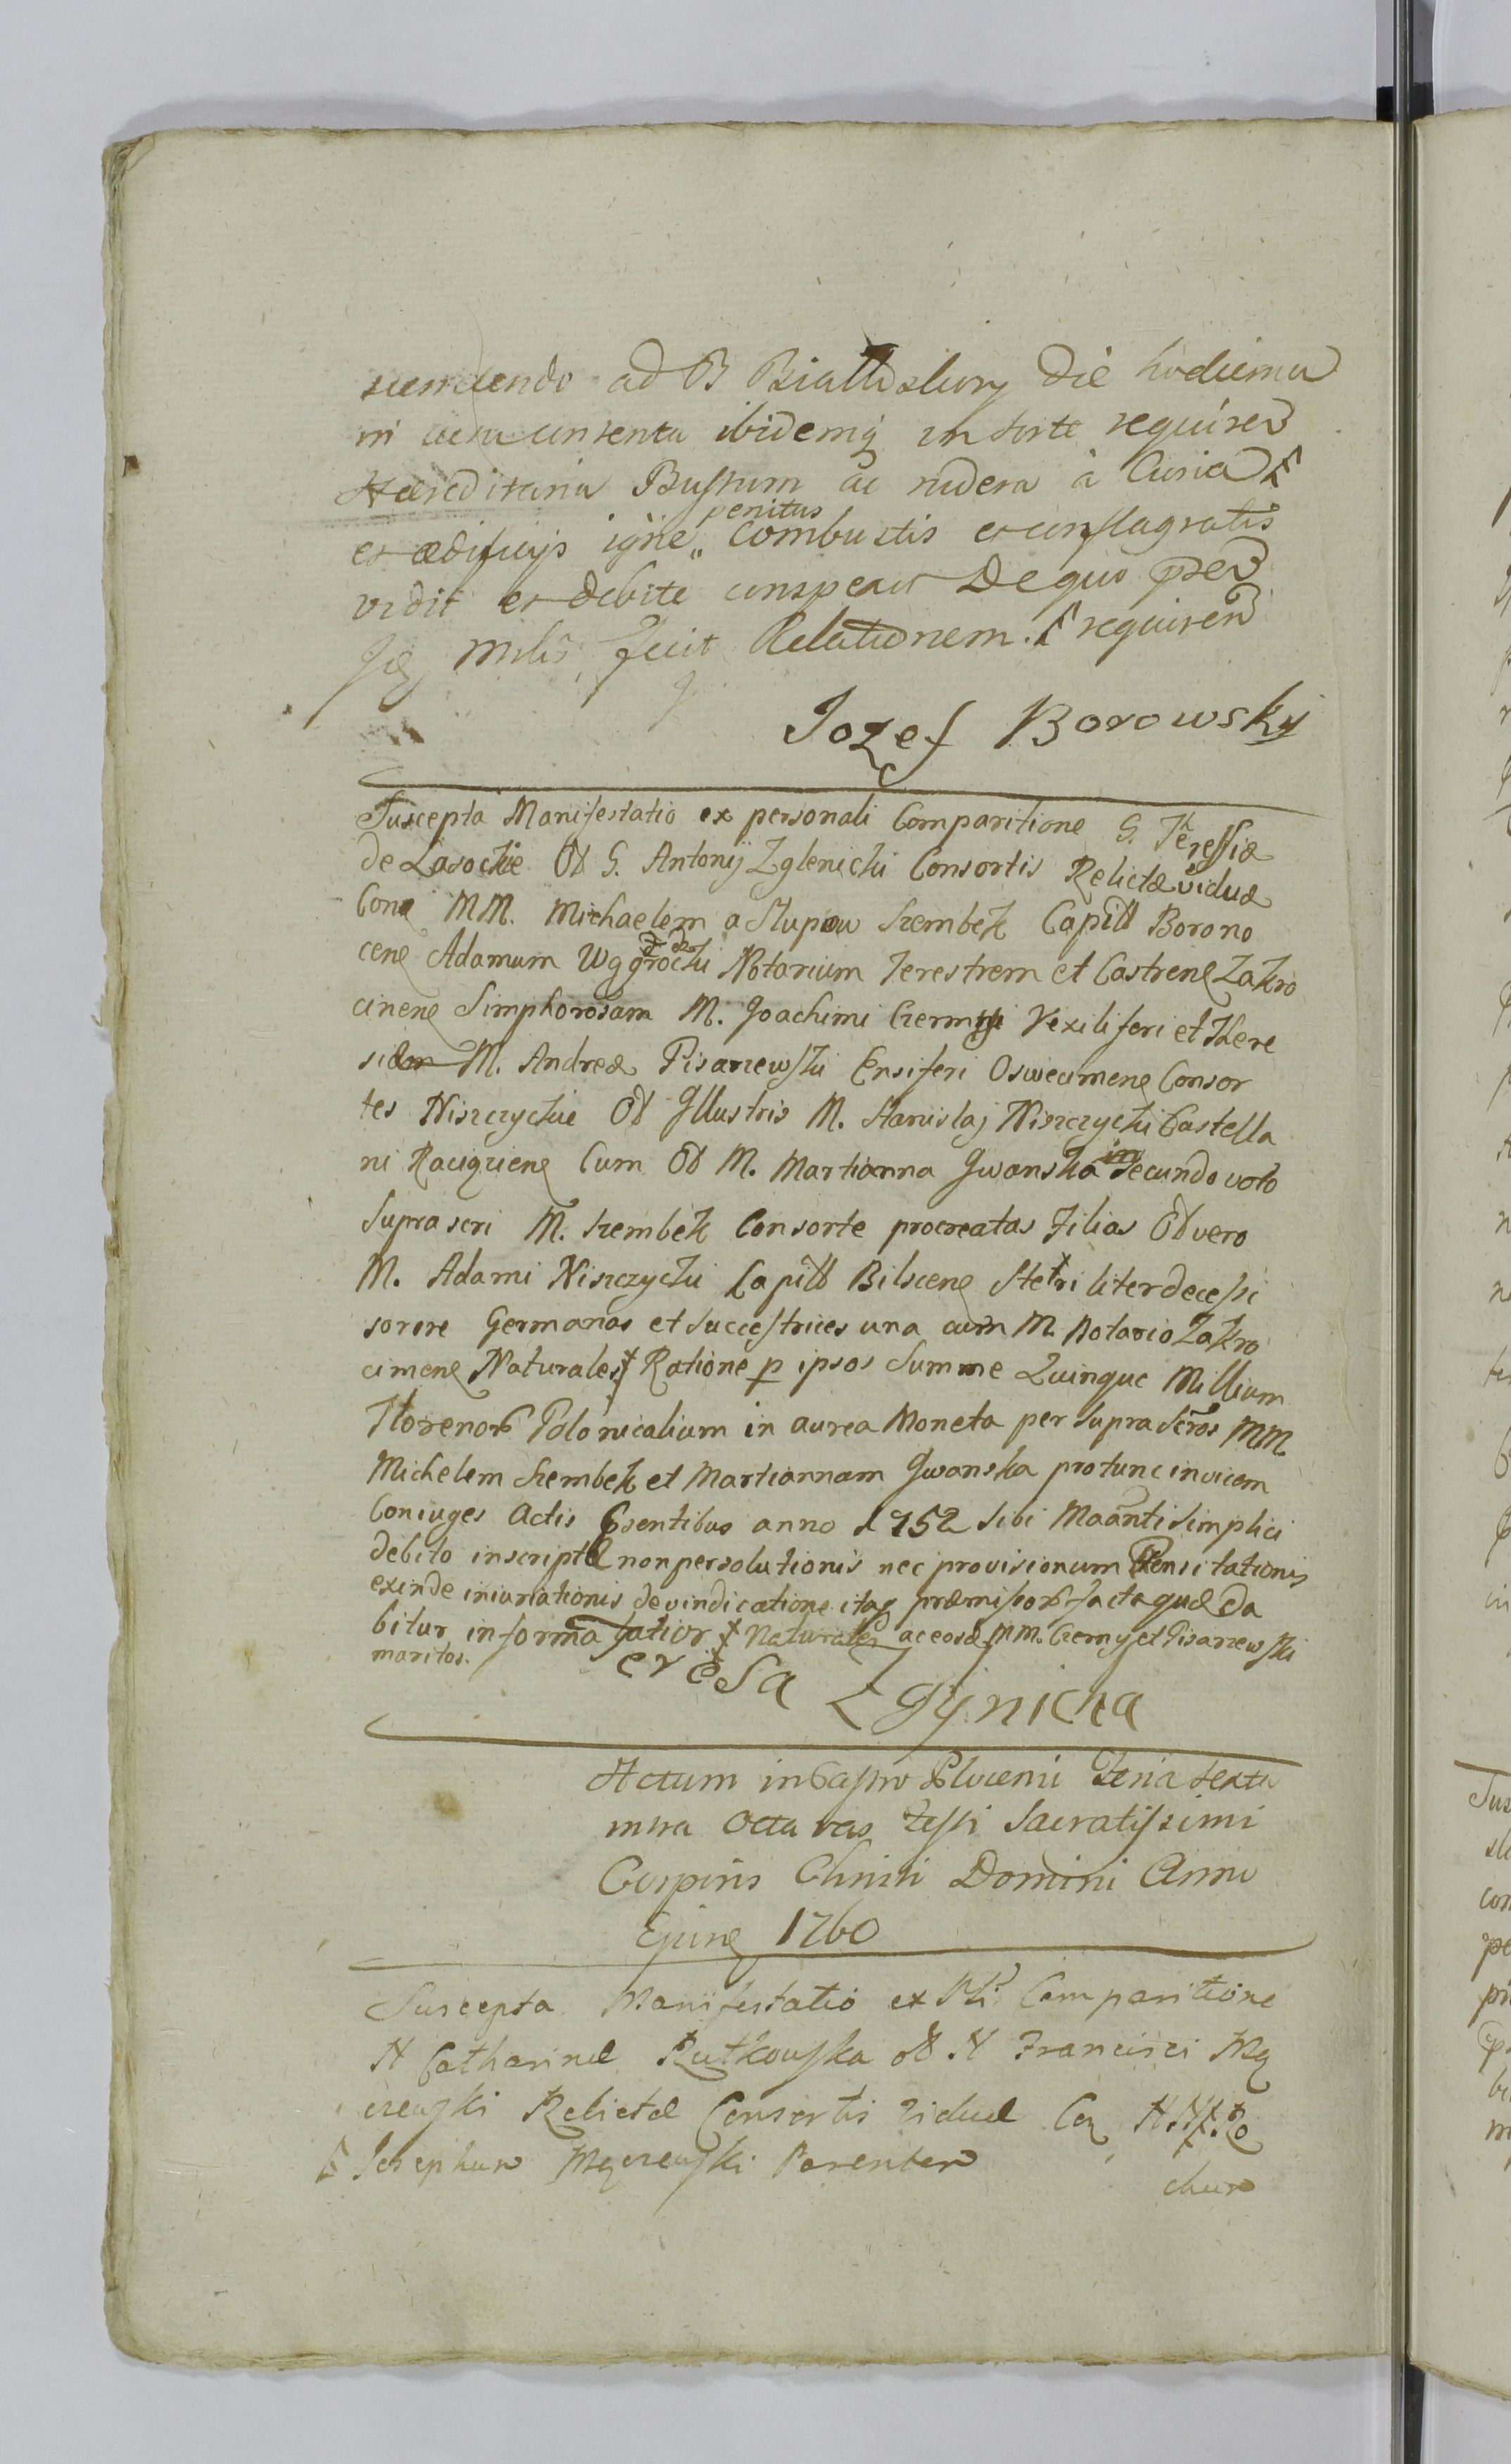 ad B Biattoslwy Die hodierna
ibidemq in sorte requiren
Hæreditaria Bustum ac rudera à Curia
et ædificijs igne penitus Combustis et conflagratis
vidit et debite conspexit De quo
fecit Relationem. requiren
Jozef Borowsky
Suscepta Manifestatio ex personali Comparitione G. Theressiæ
de Lasockie Od G. Antonij Zglenicki Consortis Relictæ viduæ
Cona MM. Michaelem a Slupow Szembek Capitt Borono
cen Adamum Notarium Terestrem et Castren Zakro
cinen Simphorosam M. Joachimi Czerny Vexiliferi et There
siam M. Andreæ Pisarzewski Ensiferi Oswiecimen Consor
tes Niszczyckie Od Illustris M. Stanislaj Niszczycki Castella
ni Raciązien Cum Od M. Martianna Iwanska in Secundo voto
Supra scri M. Szembek Consorte procreatas Filias Od vero
M. Adami Niszczycki Capitt Bilscen Steriliter decessi
sorore Germanas et Successtrices una cum M. Notario Zakro
cimen Naturales Ratione p ipsos Summe Quinque Millium
Florenor Polonicalium in aurea Moneta per supra Scros MM.
Michelem Szembek et Martiannam Iwanska pro tunc invicem
Coniuges Actis Psentibus anno 1752 sibi Maanti Simplici
debito inscriptæ non persolutionis nec provisionum Pensitationis
exinde iniuriationis de vindicatione itaq præmissor facta quæ da
bitur in forma latior Naturales ac eos MM. Czerny et Pisarzewski
maritos.
eresa Zglynicka
Actum in Castro Plocen Feria sexta
intra Octavas Festi Sacratissimi
Corporis Christi Domini Anno
Ejus 1760
Suscepta Manifestatio ex Pli Comparitione
N Catharinæ Rutkowska od N Francisci Mą
czewski Relictæ Consortis Viduæ Con NN. Ro
Josephum Mączewski Parentem
chum